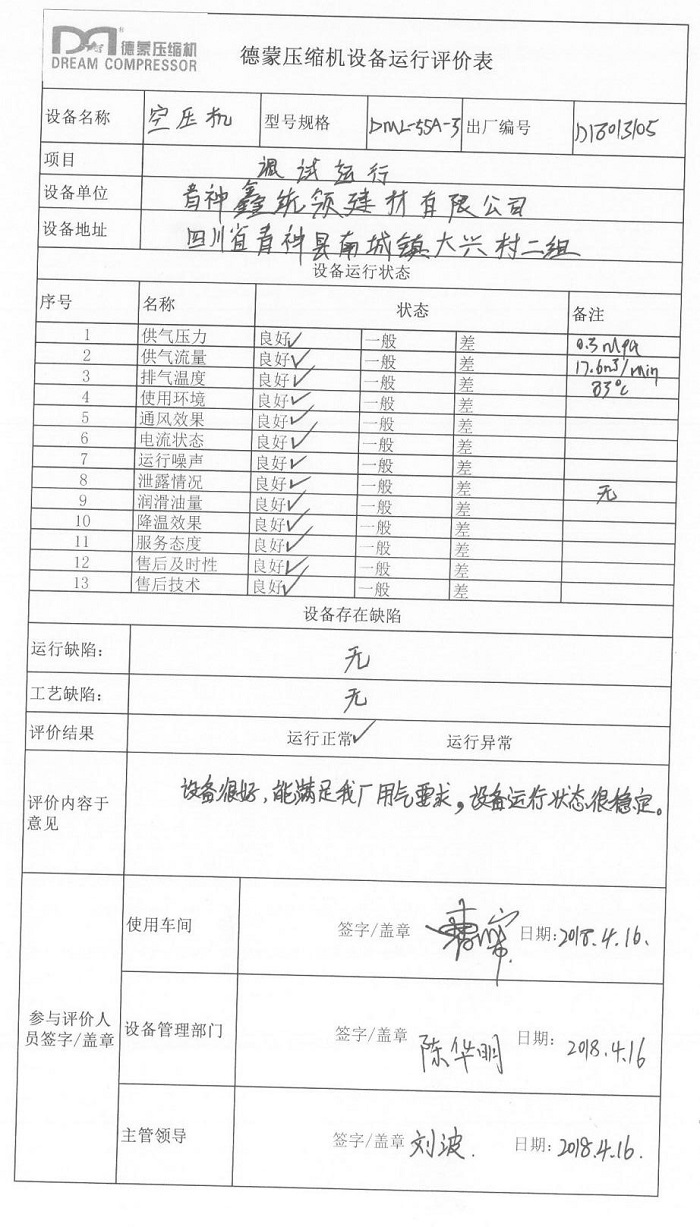 德蒙压缩机
DREAM COMPRESSOR
德蒙压缩机设备运行评价表
设备名称 空压机 型号规格 DML-55A-3 出厂编号 D18013105
项目 调试运行
设备单位 青神鑫统领建材有限公司
设备地址 四川省青神县南城镇大兴村二组
设备运行状态
序号 名称 状态 备注
1 供气压力 良好✓ 一般 差 0.3mpa
2 供气流量 良好✓ 一般 差 17.6m³/min
3 排气温度 良好✓ 一般 差 83°C
4 使用环境 良好✓ 一般 差
5 通风效果 良好✓ 一般 差
6 电流状态 良好✓ 一般 差
7 运行噪声 良好✓ 一般 差
8 泄露情况 良好✓ 一般 差 无
9 润滑油量 良好✓ 一般 差
10 降温效果 良好✓ 一般 差
11 服务态度 良好✓ 一般 差
12 售后及时性 良好✓ 一般 差
13 售后技术 良好✓ 一般 差
设备存在缺陷
运行缺陷: 无
工艺缺陷: 无
评价结果 运行正常✓ 运行异常
评价内容于
意见
设备很好,能满足我厂用气要求,设备运行状态很稳定。
参与评价人
员签字/盖章
使用车间 签字/盖章 日期:2018.4.16.
设备管理部门 签字/盖章 陈华明 日期: 2018.4.16
主管领导 签字/盖章 刘波. 日期:2018.4.16.